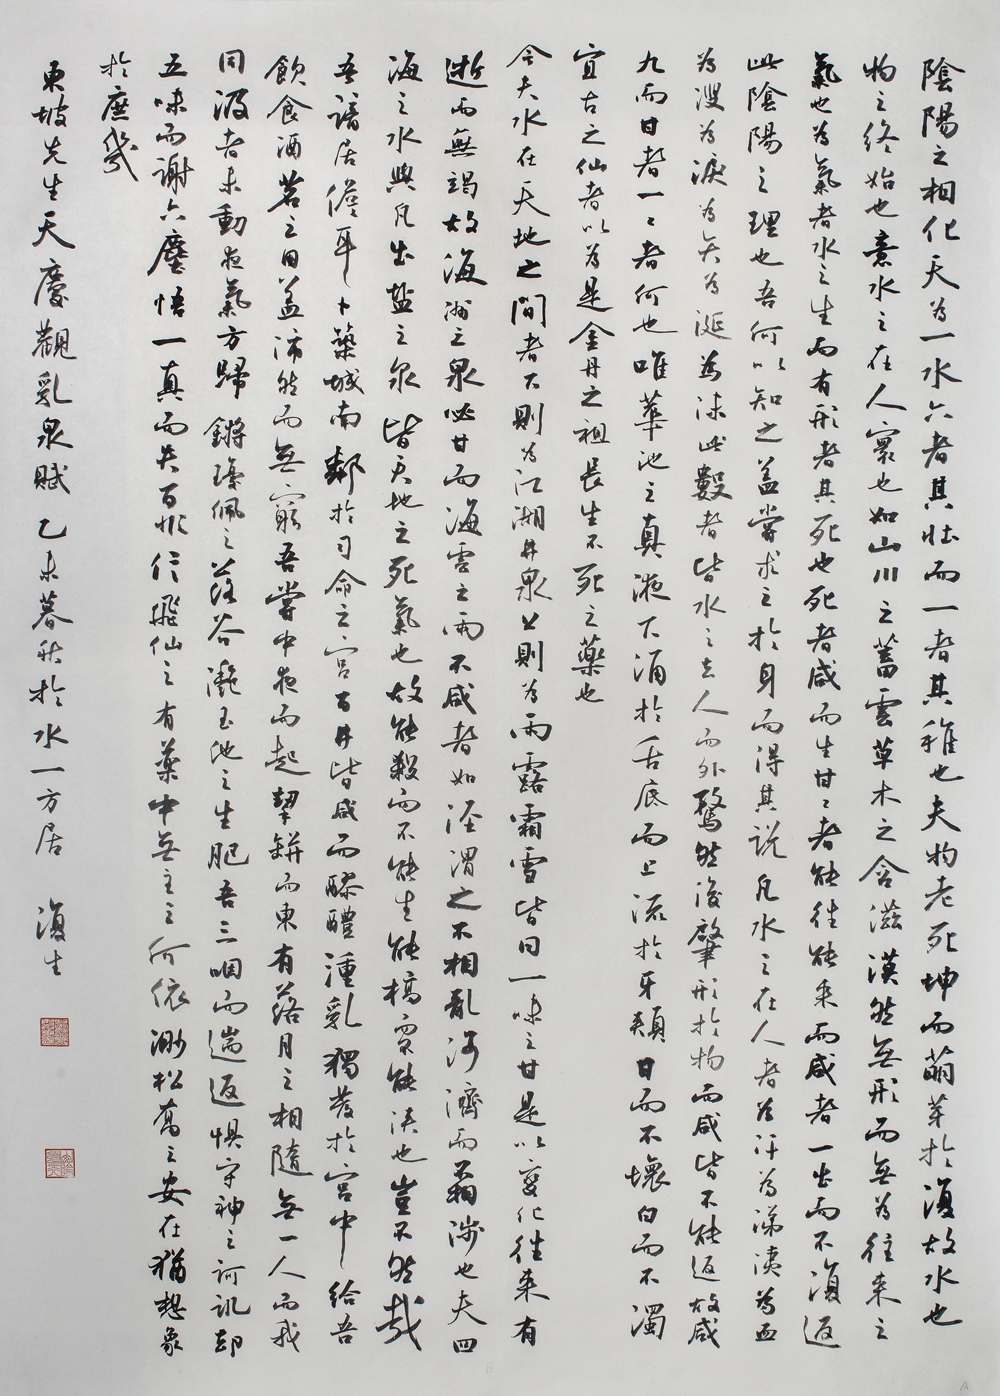 陰陽之相化天為一水六者其壯而一者其稚也夫物老死坤而萌芽於復故水也
物之終始也意水之在人寰也如山川之蓄雲草木之含滋漠然無形而無為往來之
氣也為氣者水之生而有形者其死也死者咸而生甘甘者能往能來而咸者一出而不復返
此陰陽之理也吾何以知之蓋嘗求之於身而得其說凡水之在人者為汗為涕洟為血
為溲為淚為矢為涎為沫此數者皆水之去人而外騖然後肇形於物而咸皆不能返故咸
九而甘者一一者何也唯華池之真液下涌於舌底而上流於牙頰甘而不壞白而不濁
宜古之仙者以為是金丹之祖長生不死之藥也
今夫水在天地之間者下則為江湖井泉上則為雨露霜雪皆同一味之甘是以變化往來有
逝而無竭故海洲之泉必甘而海雲之雨不咸者如涇渭之不相亂河濟而不相涉也夫四
海之水與凡出鹽之泉皆天地之死氣也故能殺而不能生能槁而不能浹也豈不然哉
吾謫居儋耳卜築城南鄰於司命之宮百井皆咸而醪醴湩乳獨發於宮中給吾
飲食酒茗之用蓋沛然而無窮吾嘗中夜而起挈缾而東有落月之相隨無一人而我
同汲者未動夜氣方歸鏘瓊佩之落谷灩玉池之生肥吾三咽而遄返懼守神之訶譏卻
五味而謝六塵悟一真而失百非信飛仙之有藥中無主之何依渺松喬之安在猶想象
於庶幾
東坡先生天慶觀乳泉賦 乙未暮秋於水一方居 復生